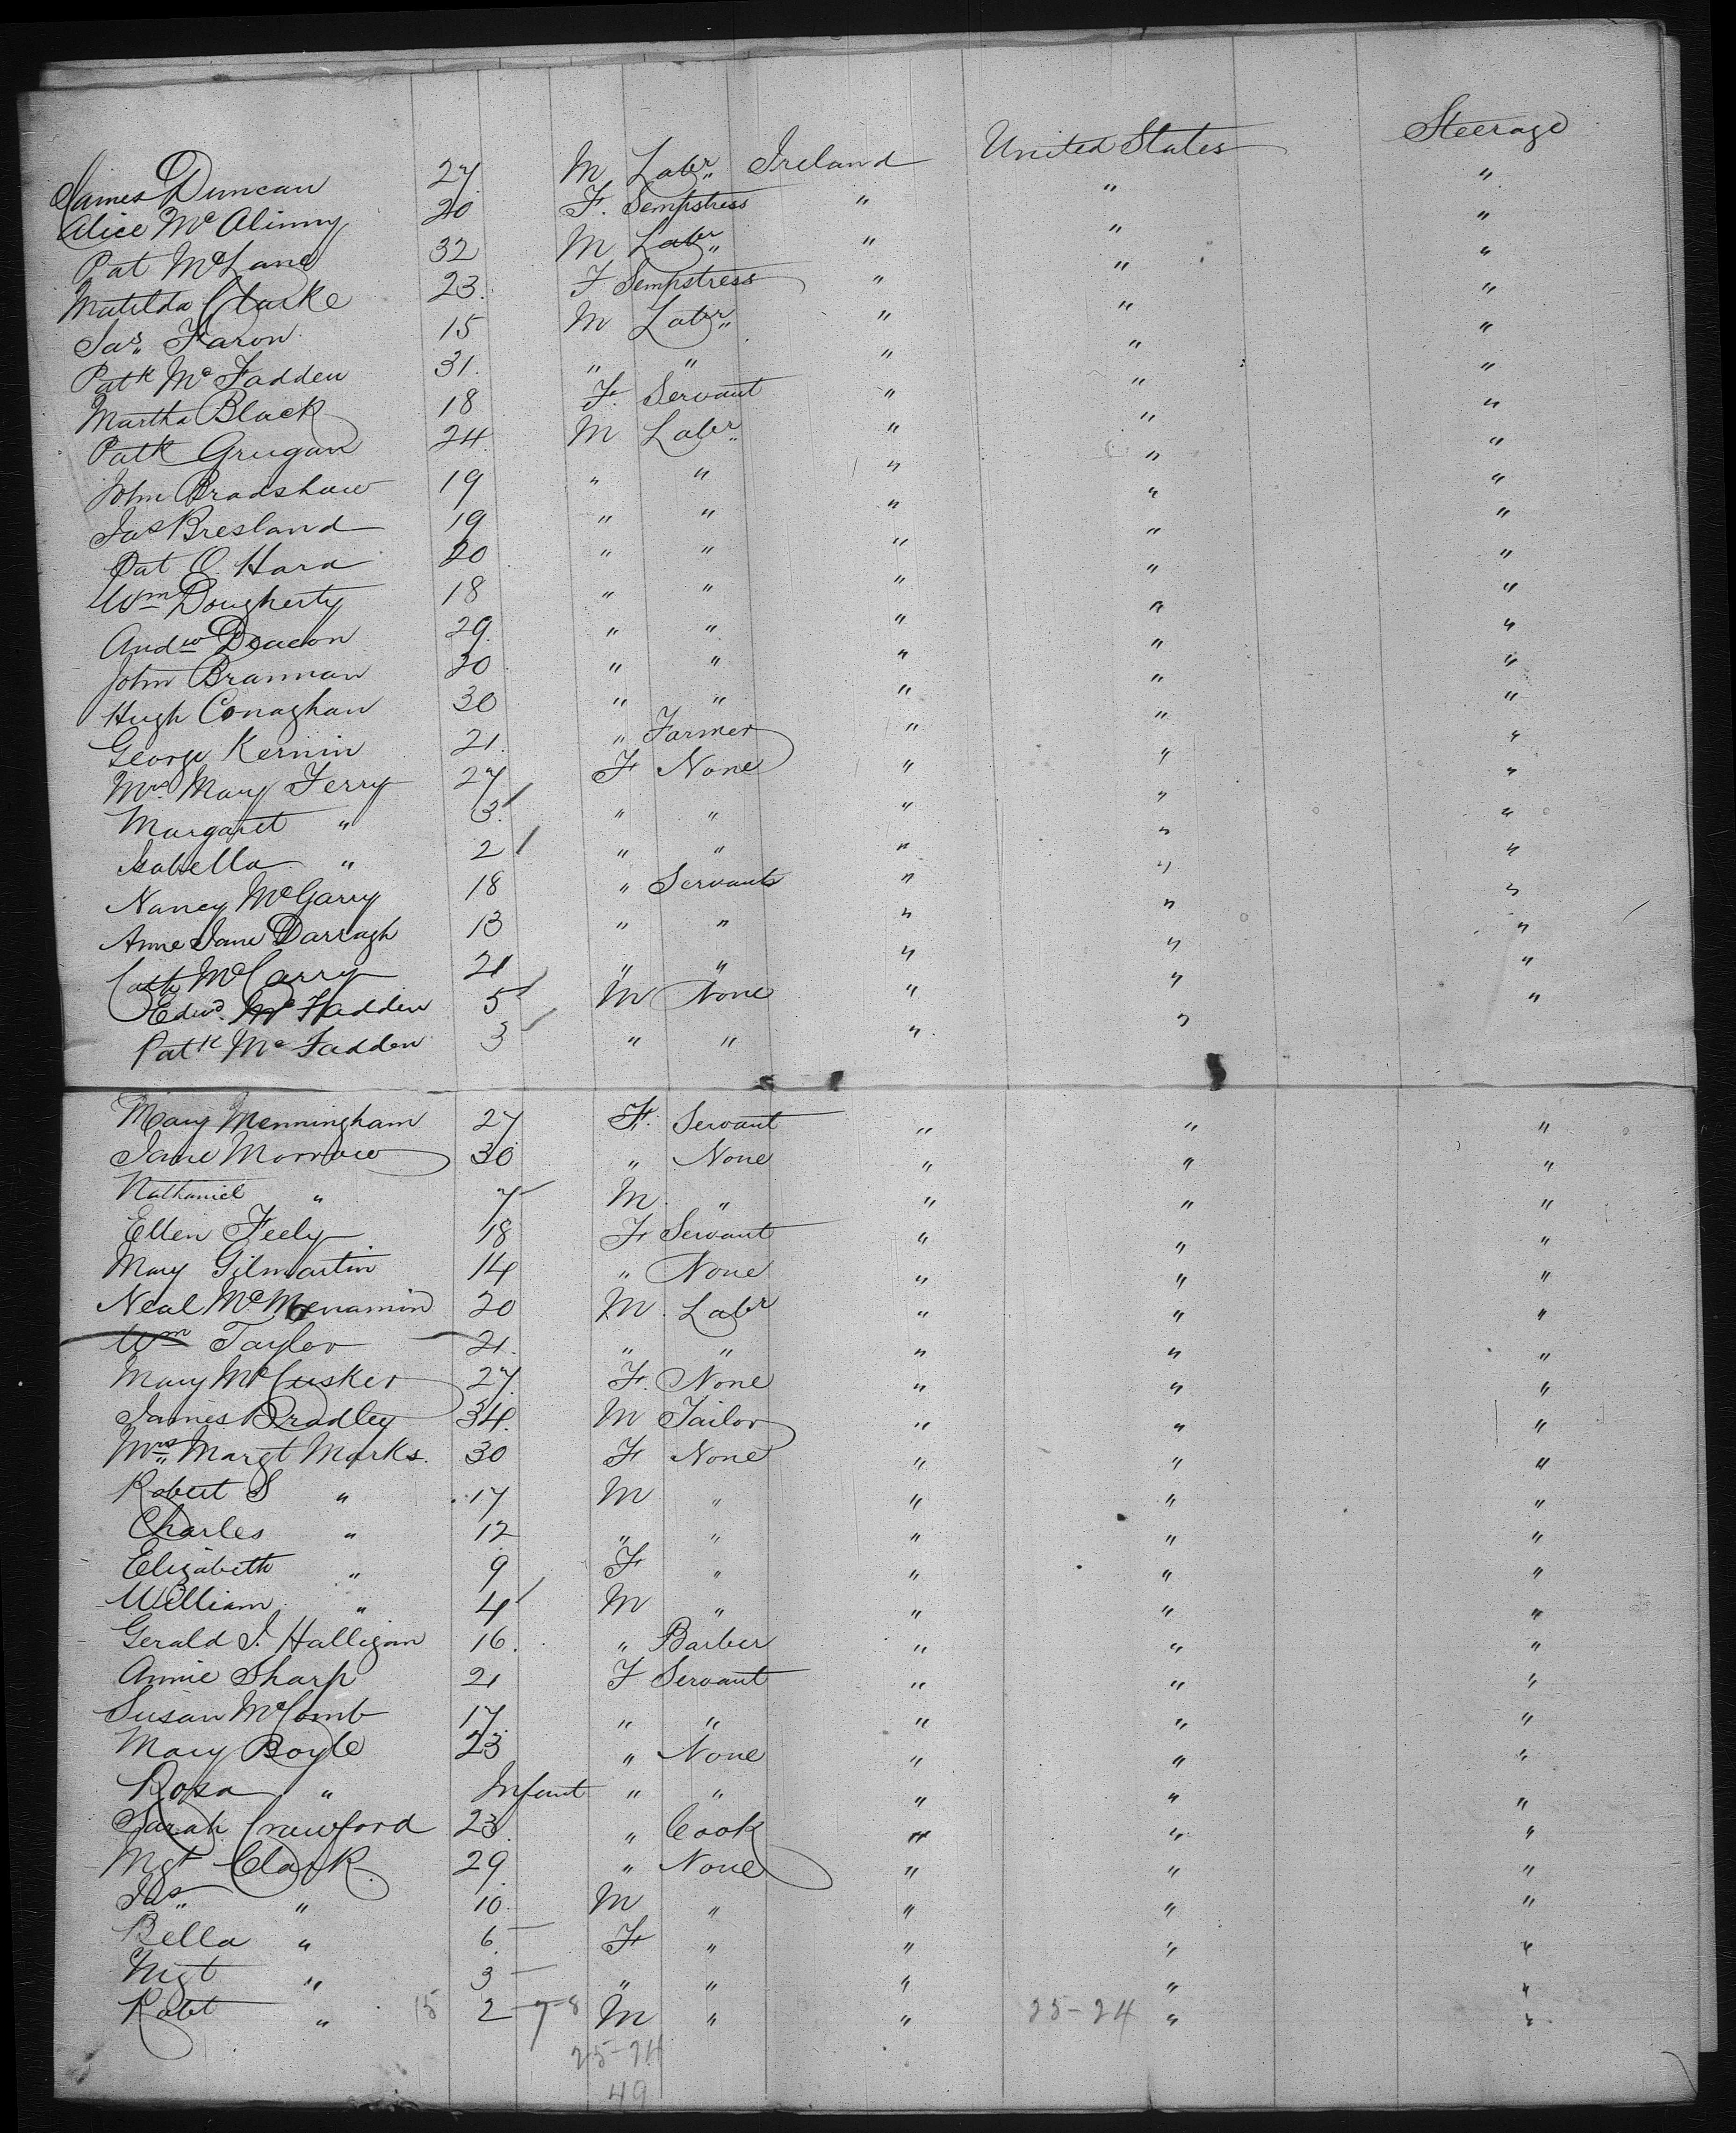 James Duncan 27 M Labr Ireland United States Steerage
Alice McAlinny 20 F. Sempstress " " "
Pat McLane 32 M Labr " " "
Matilda Clarke 23. F Sempstress " " "
Jas. Faron 15 M Labr " " "
Patk McFadden 31. " " " " "
Martha Black 18 F. Servant " " "
Patk Grugan 24 M Labr " " "
John Bradshaw 19 " " " " "
Jas Bresland 19 " " " " "
Pat O. Hara 20 " " " " "
Wm Dougherty 18 " " " " "
Andw Deacon 29. " " " " "
John Brannan 20 " " " " "
Hugh Conaghan 30 " " " " "
George Kernin 21. " Farmer " " "
Mrs. Mary Ferry 27 F None " " "
Margaret " 3 " " " " "
Isabella " 2 " " " " "
Nancy McGarry 18 " Servant " " "
Anne Jane Darragh 13 " " " " "
Cath McCarry 21 " " " " "
Edwd. McFadden 5 M None " " "
Patk McFadden 3 " " " "
Mary Menningham 27 F. Servant " " "
Jane Morrow 30 " None " " "
Nathaniel " 7 M. " " " "
Ellen Feely 18 F Servant " " "
Mary Gilmartin 14 " None " " "
Neal McMenamin 20 M. Labr " " "
Wm Taylor 21. " " " " "
Mary McCusker 27. F. None " " "
James Bradley 34. M Tailor " " "
Mrs. Margt Marks. 30 F None " " "
Robert S " 17 M " " " "
Charles " 12 " " " " "
Elizabeth " 9 F " " " "
William " 4 M " " " "
Gerald J. Halligan 16. " Barber " " "
Annie Sharp 21 F Servant " " "
Susan McComb 17 " " " " "
Mary Boyle 23 " None " " "
Rosa " Infant " " " " "
Sarah Crawford 23. " Cook " " "
Mgt Clark. 29. " None " " "
Jas. " 10. M " " " "
Bella " 6. F " " " "
Mgt " 3 " " " " "
Robt " 15 2 7-8 M " " 25-24 " "
25-24
49